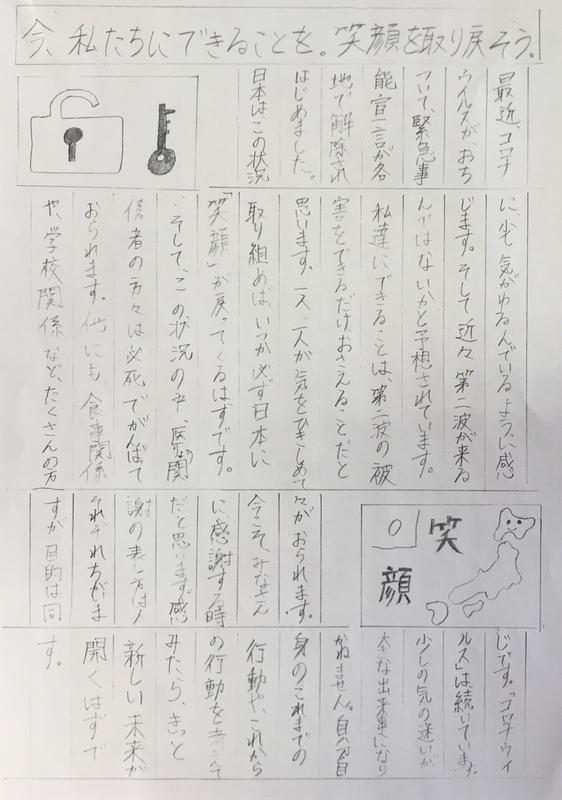 今、私たちにできることを。笑顔を取り戻そう。
最近、コロナ
ウイルスが、おち
ついて、緊急事
能宣言が各
地で解除され
はじめました。
日本はこの状況
に、少も気がゆるんでいるように感
じます。そして近々第二波が来る
んではないかと予想されています。
私達にできることは、第二波の被
害をできるだけおさえることだと
思います。一人、一人が気をひきしめて
取り組めば、いつか必ず日本に
「笑顔」が戻ってくるはずです。
そして、この状況の中、医療関
係者の方々は必死でがんばて
おられます。他にも、食事関係
や、学校関係など、たくさんの方
々がおられます。
今こそ、みなさん
に、感謝する時
だと思います。感
謝の表し方は人
それぞれちがいま
すが目的は同
じです。「コロナウイ
ルス」は、続いています。
少しの気の迷いが
大きな出来事になり
かねません。自ヘ自
身のこれまでの
行動や、これから
の行動を考えて
みたら、きっと
新しい未来が
開くはずで
す。
笑
顔